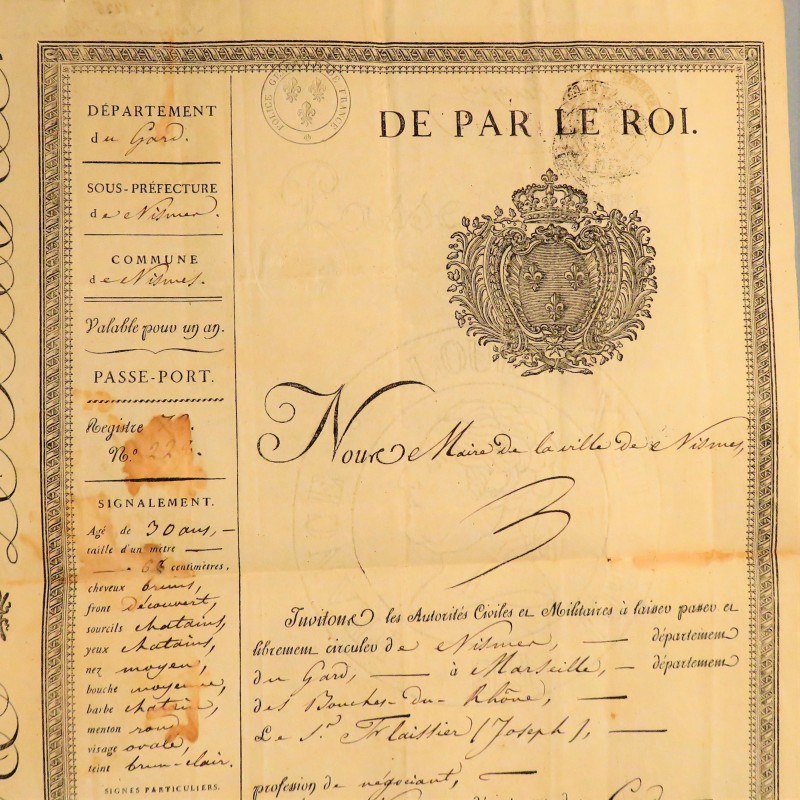 DÉPARTEMENT
du Gard.
SOUS-PRÉFECTURE
de Nismes.
COMMUNE
de Nismes.
Valable pour un an.
PASSE-PORT.
Registre
N.º
SIGNALEMENT.
Agé de 30 ans,
taille d'un mètre —
— centimètres,
cheveux bruns,
front découvert,
sourcils chatains,
yeux chatains,
nez moyen,
bouche moyenne,
barbe
menton rond,
visage ovale,
teint brun-clair.
SIGNES PARTICULIERS.
POLICE GÉNÉRALE DE FRANCE
DE PAR LE ROI.
Nous Maire de la ville de Nismes,
Invitons les Autorités Civiles et Militaires à laisser passer et
librement circuler de Nismes, — département
du Gard, — à Marseille, — département
des Bouches-du-Rhône, —
Le S.r Flaissier (Joseph), —
profession de négociant, —